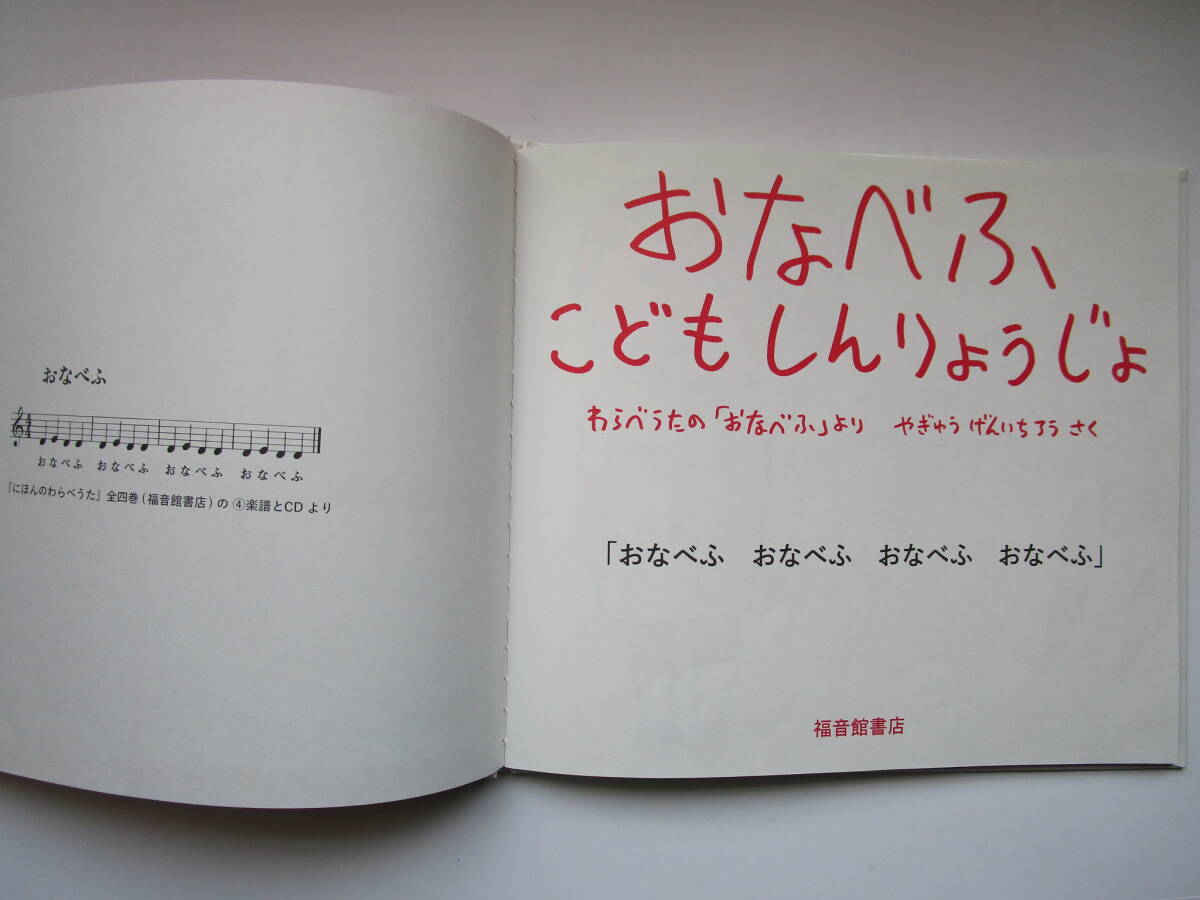 おなべふ
おなべふ おなべふ おなべふ おなべふ
『にほんのわらべうた』全四巻(福音館書店)の ④楽譜とCDより
おなべふ、
こどもしんりょうじょ
わらべうたの「おなべふ」より やぎゅう げんいちろう さく
「おなべふ おなべふ おなべふ おなべふ」
福音館書店